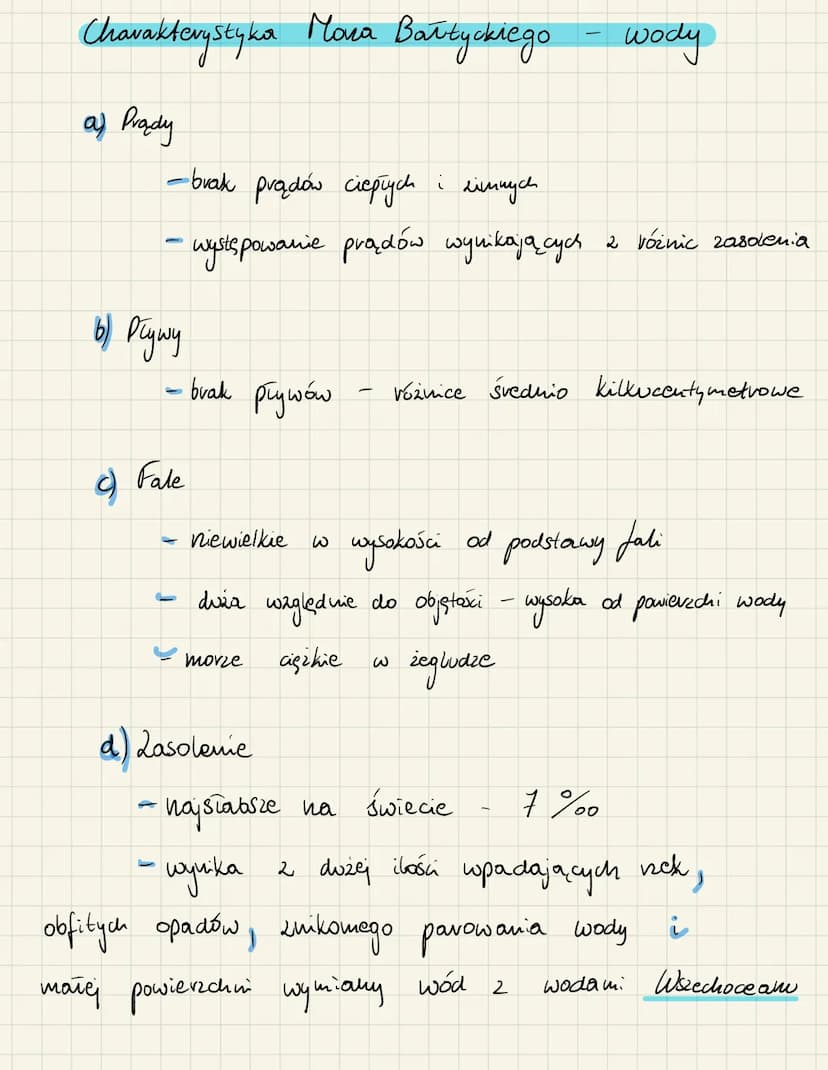 Charakterystyka Morza Bałtyckiego - wody
a) Prądy
- brak prądów ciepłych i zimnych
- występowanie prądów wynikających z różnic zasolenia
b) Pływy
- brak pływów - różnice średnio kilkucentymetrowe
c) Fale
- niewielkie w wysokości od podstawy fali
- duża względnie do objętości - wysoka od powierzchi wody
- morze ciężkie w żegludze
d) Zasolenie
- najsłabsze na świecie - 7 ‰
- wynika z dużej ilości wpadających rzek,
obfitych opadów, znikomego parowania wody i
małej powierzchni wymiany wód z wodami Wszechoceanu